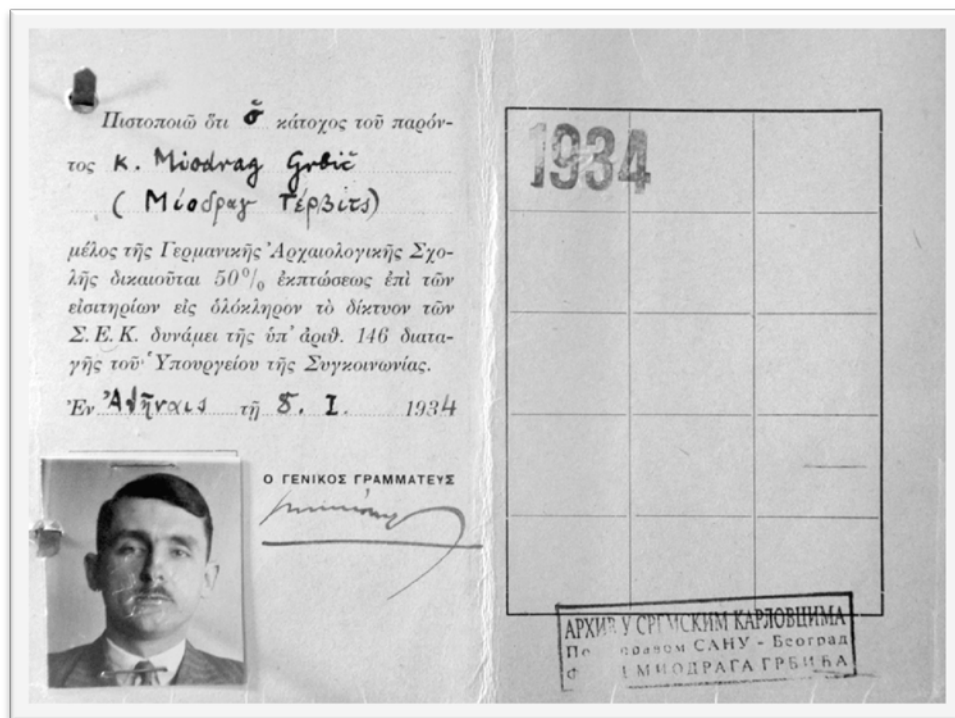 Πιστοποιῶ ὅτι ὅ κάτοχος τοῦ παρόν-
τος κ. Miodrag Grbič
( Μίοδραγ Γέρβιτς)
μέλος τῆς Γερμανικῆς Ἀρχαιολογικῆς Σχο-
λῆς δικαιοῦται 50% ἐκπτώσεως ἐπὶ τῶν
εἰσιτηρίων εἰς ὁλόκληρον τὸ δίκτυον τῶν
Σ. Ε. Κ. δυνάμει τῆς ὑπ' ἀριθ. 146 διατα-
γῆς τοῦ Ὑπουργείου τῆς Συγκοινωνίας.
Ἐν Ἀθήναις τῇ 8. I. 1934
Ο ΓΕΝΙΚΟΣ ΓΡΑΜΜΑΤΕΥΣ
1934
АРХИВ У СРЕМСКИМ КАРЛОВЦИМА
САНУ - Београд
МИОДРАГА ГРБИЋА